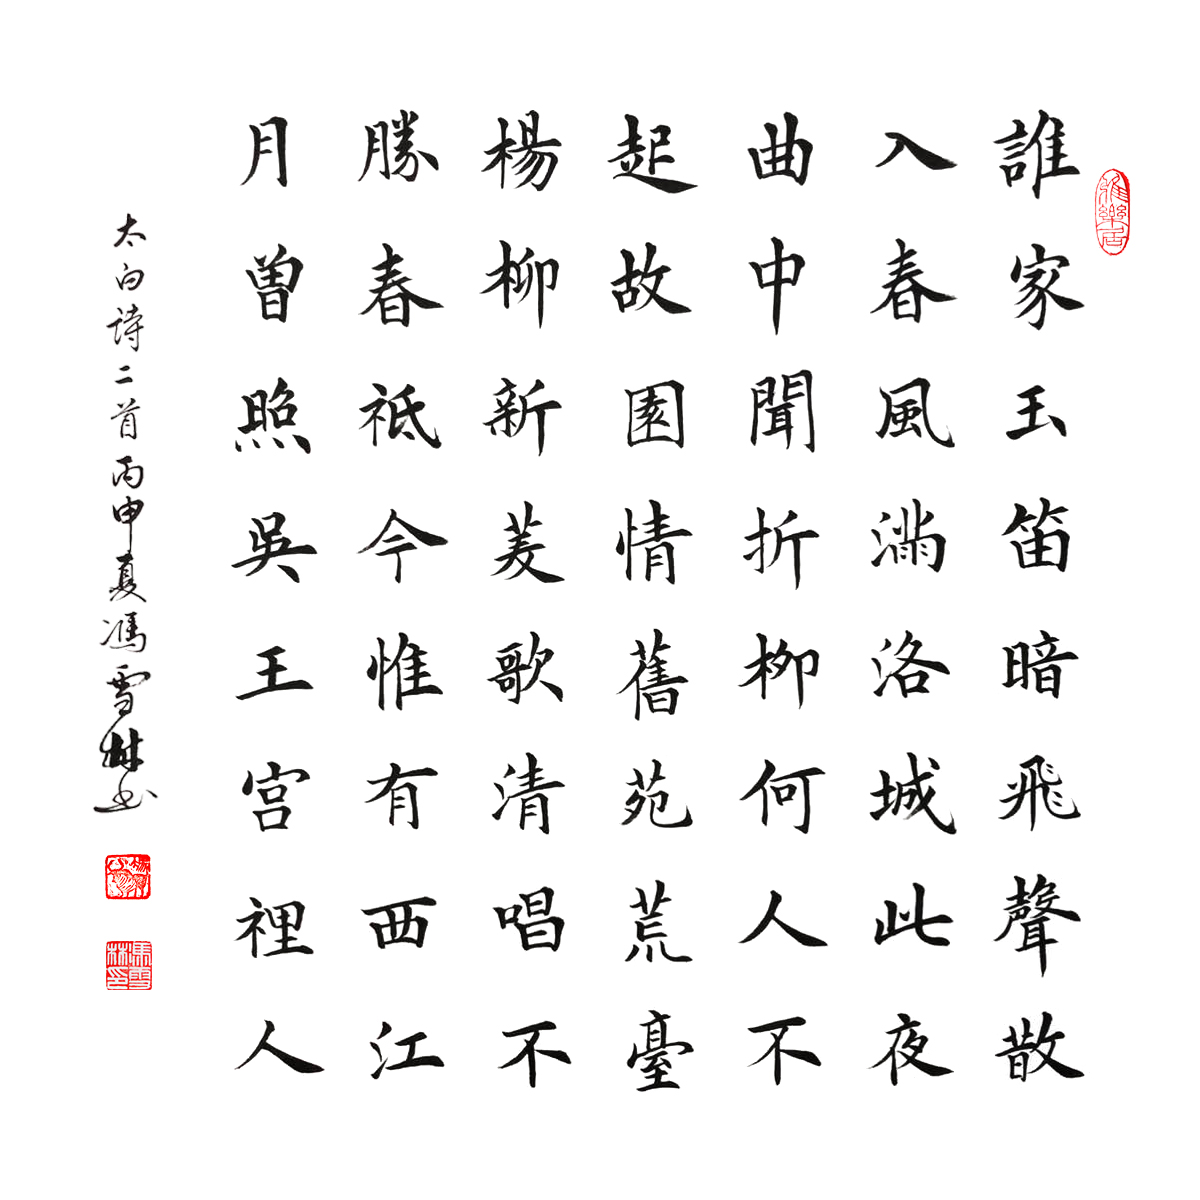 誰家玉笛暗飛聲散
入春風滿洛城此夜
曲中聞折柳何人不
起故園情舊苑荒臺
楊柳新菱歌清唱不
勝春祗今惟有西江
月曾照吳王宮裡人
太白诗二首丙申夏馮雪林书
雅樂居
馮雪林印